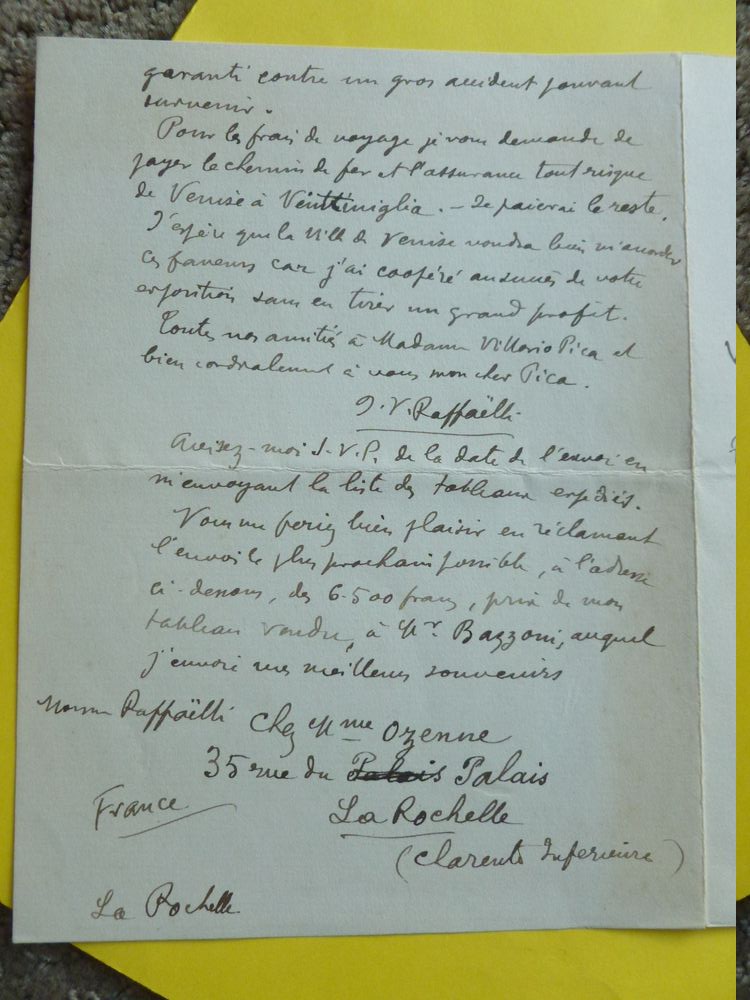 garanti contre un gros accident pouvant
survenir.
Pour les frais de voyage je vous demande de
payer le chemin de fer et l'assurance tout risque
de Venise à Venttimiglia. — Je paierai le reste.
J'espère que la Ville de Venise voudra bien m'accorder
ces faveurs car j'ai coopéré au succès de votre
exposition sans en tirer un grand profit.
Toutes nos amitiés à Madame Vittorio Pica et
bien cordialement à vous mon cher Pica.
J. V. Raffaëlli
Avisez-moi S.V.P. de la date de l'envoi en
m'envoyant la liste des tableaux expédiés.
Vous me feriez bien plaisir en réclamant
l'envoi le plus prochain possible, à l'adresse
ci-dessous, des 6.500 francs, prix de mon
tableau vendu, à Mr. Bazzoni, auquel
j'envoie mes meilleurs souvenirs
Raffaëlli Chez Mme Ozenne
35 rue du Palais Palais
France La Rochelle
(Clarente Inferieure)
La Rochelle